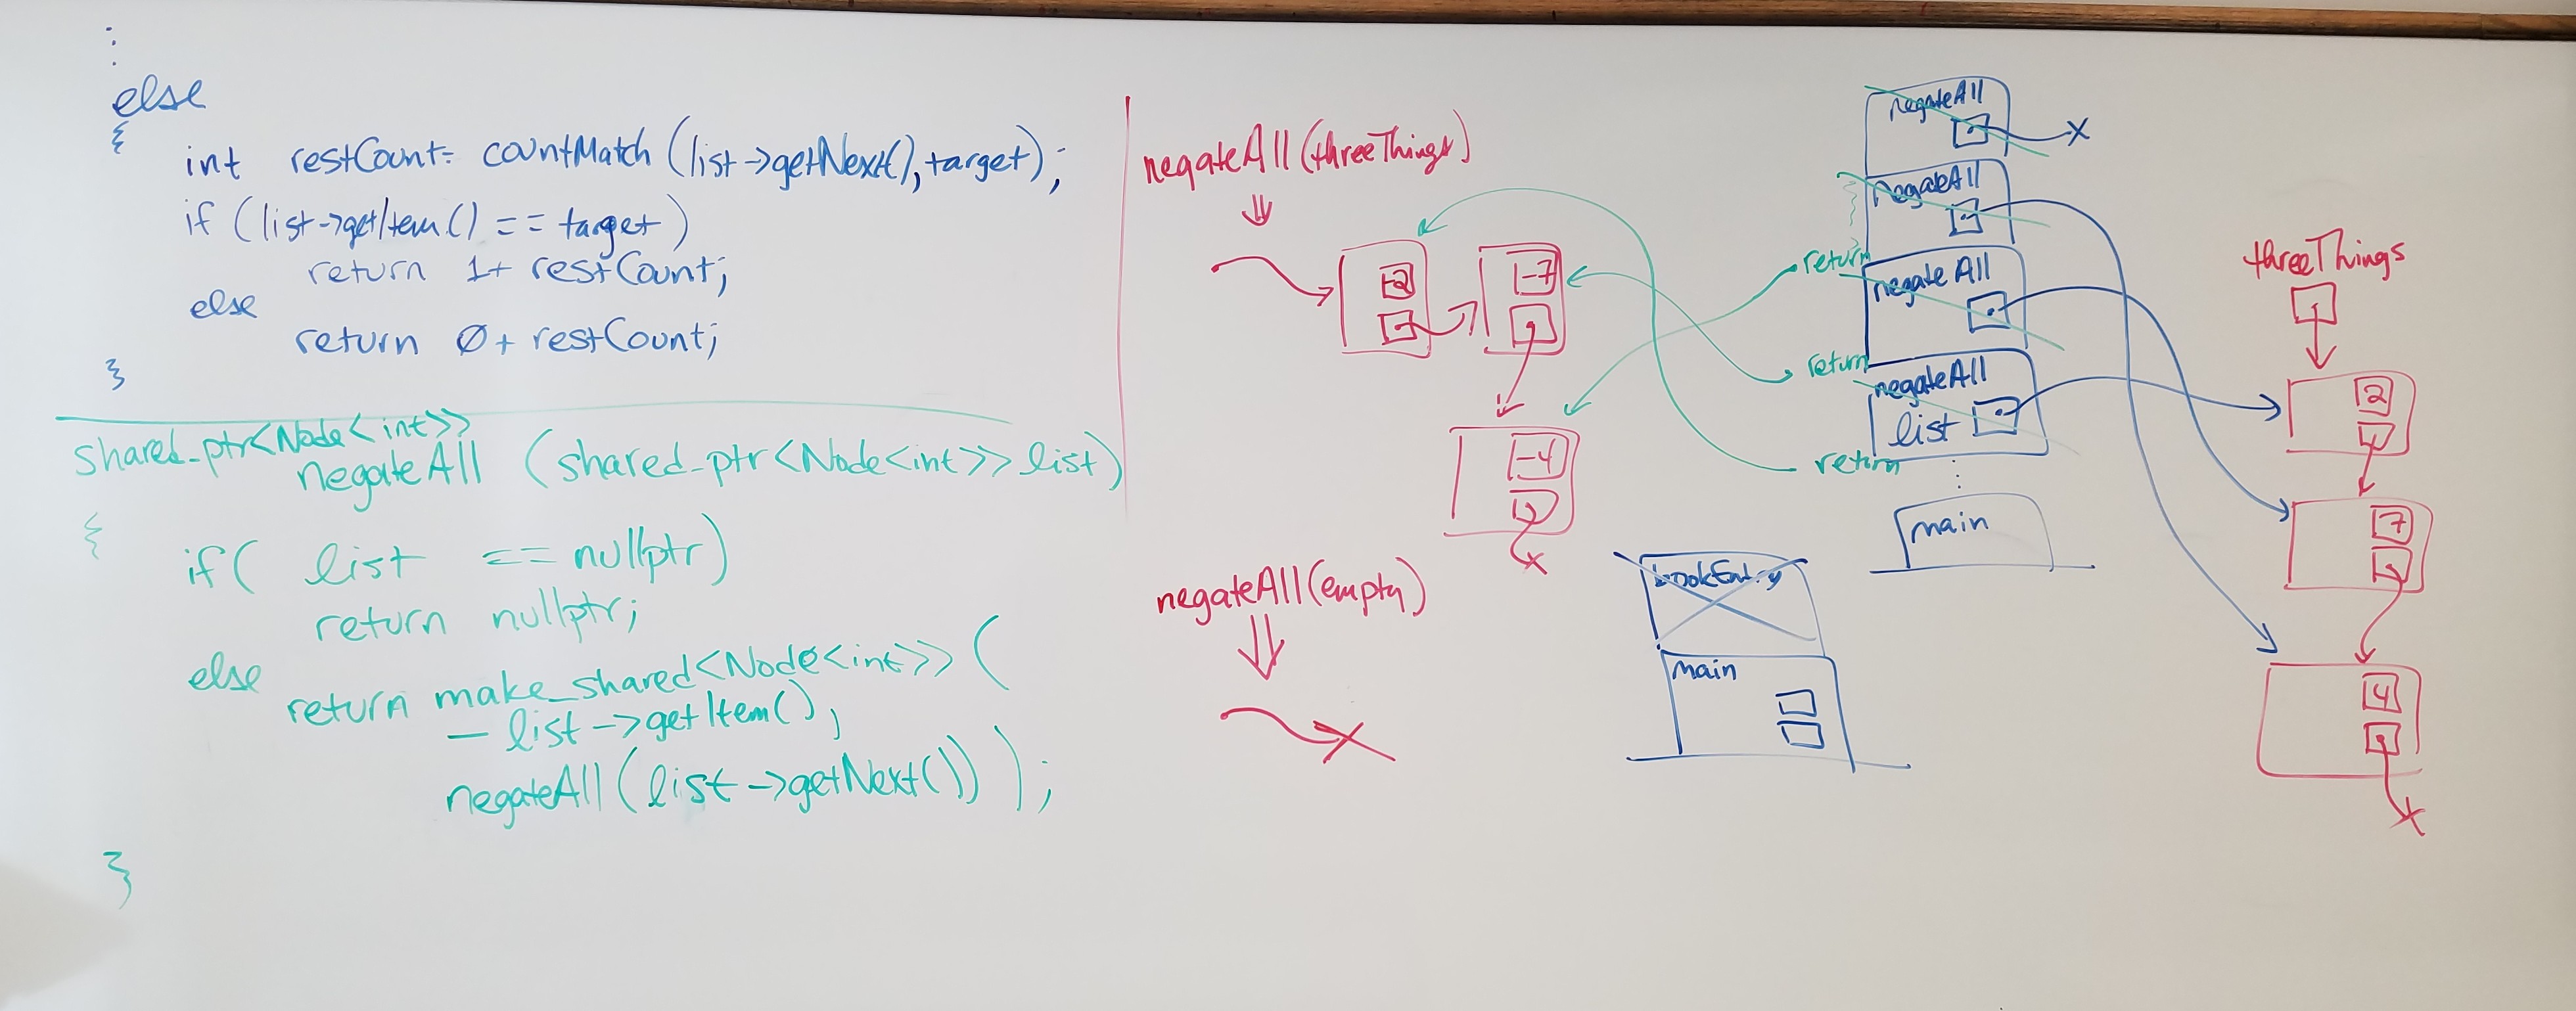 else
{
int restCount= countMatch (list->getNext(), target);
if (list->getItem() == target)
return 1+ restCount;
else
return 0+ restCount;
}
shared_ptr<Node<int>>
negateAll (shared_ptr<Node<int>> list)
{
if( list == nullptr)
return nullptr;
else
return make_shared<Node<int>> (
- list->getItem(),
negateAll (list->getNext()) );
}
negateAll (threeThings)
-2
-7
-4
negateAll (empty)
X
negateAll
X
negateAll
return
negateAll
return
negateAll
list
return
main
bookEntry
main
threeThings
2
7
4